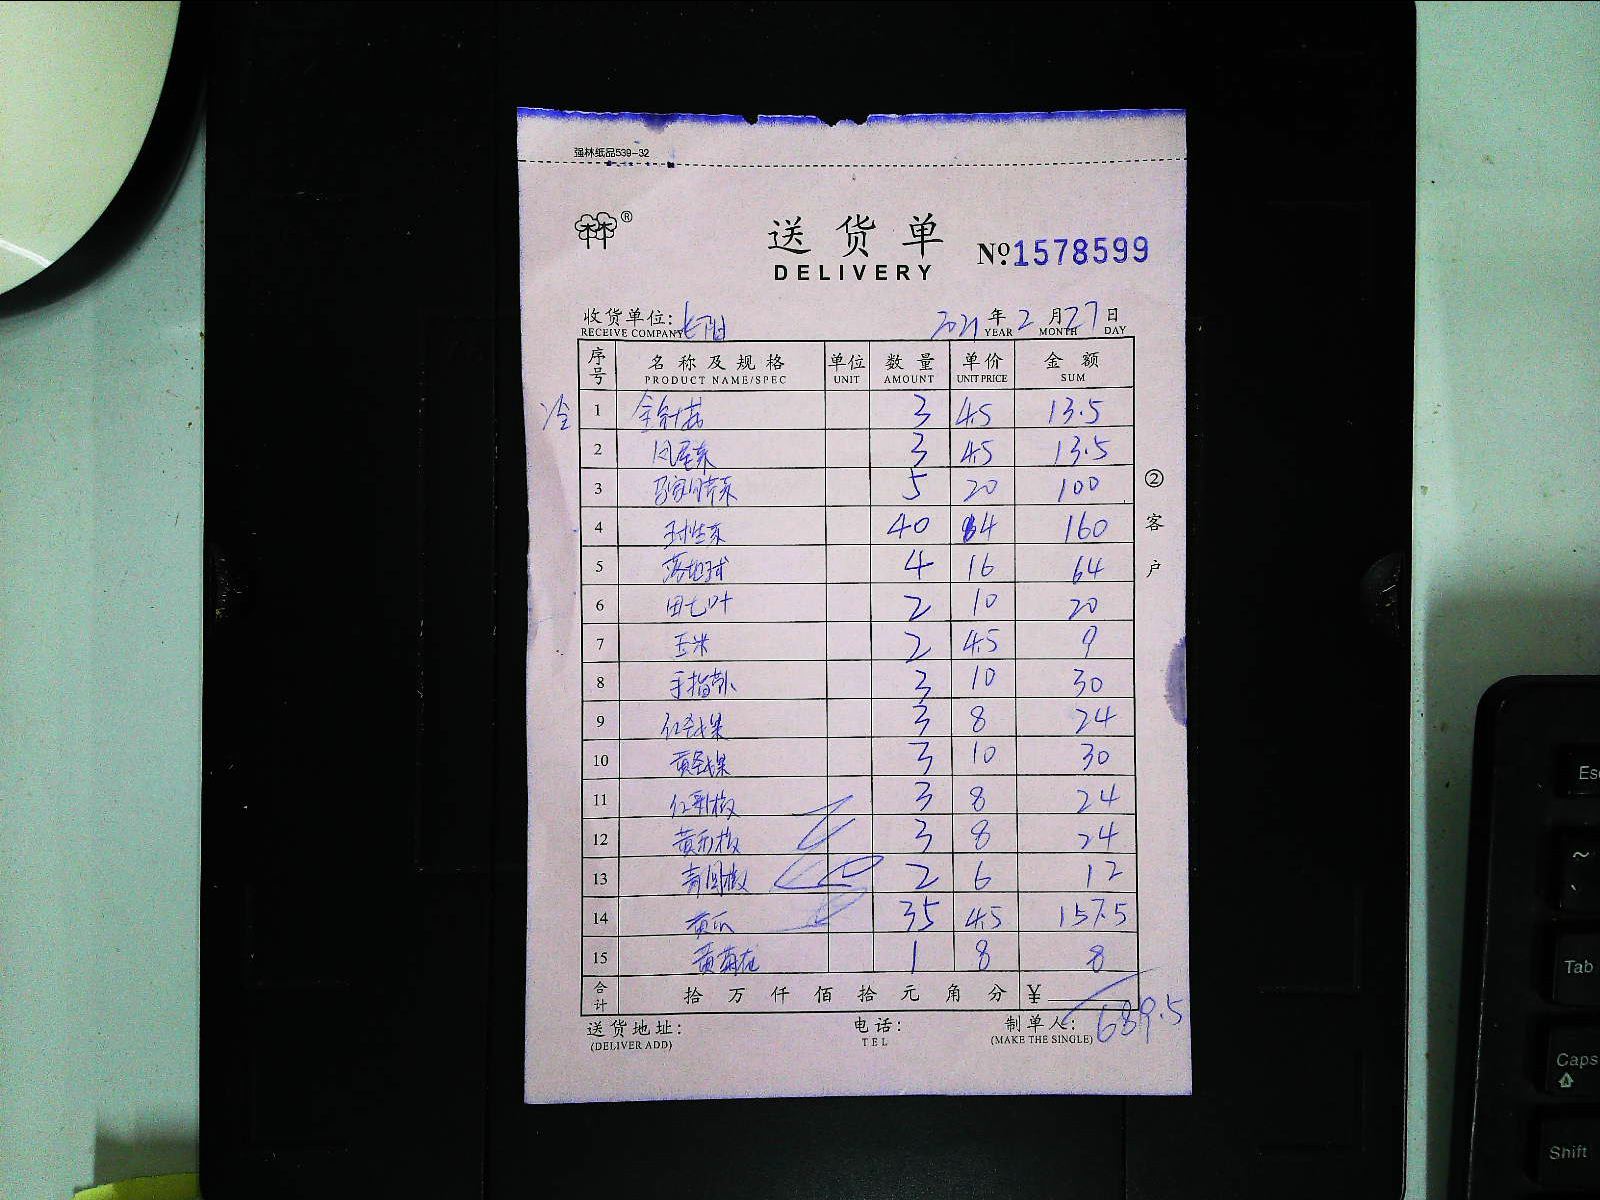 强林纸品539-32
®
送货单
DELIVERY
No.1578599
收货单位:
RECEIVE COMPANY
2021年2月27日
YEAR MONTH DAY
序号 名称及规格 单位 数量 单价 金额
PRODUCT NAME/SPEC UNIT AMOUNT UNIT PRICE SUM
冷
1 金针菇 3 4.5 13.5
2 3 4.5 13.5
3 5 20 100
4 40 4 160
5 4 16 64
6 田七叶 2 10 20
7 玉米 2 4.5 9
8 手指 3 10 30
9 3 8 24
10 3 10 30
11 红彩椒 3 8 24
12 黄彩椒 3 8 24
13 青圆椒 2 6 12
14 黄瓜 35 4.5 157.5
15 黄菊花 1 8 8
合计 拾万仟佰拾元角分 ¥
689.5
送货地址: 电话: 制单人:
(DELIVER ADD) TEL (MAKE THE SINGLE)
②客户
Esc
~
Tab
Caps
A
Shift